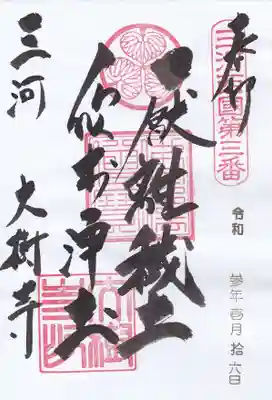 奉拝
國第三番
令和 参年壱月拾六日
厭離穢土
欣求浄土
三河 大樹寺